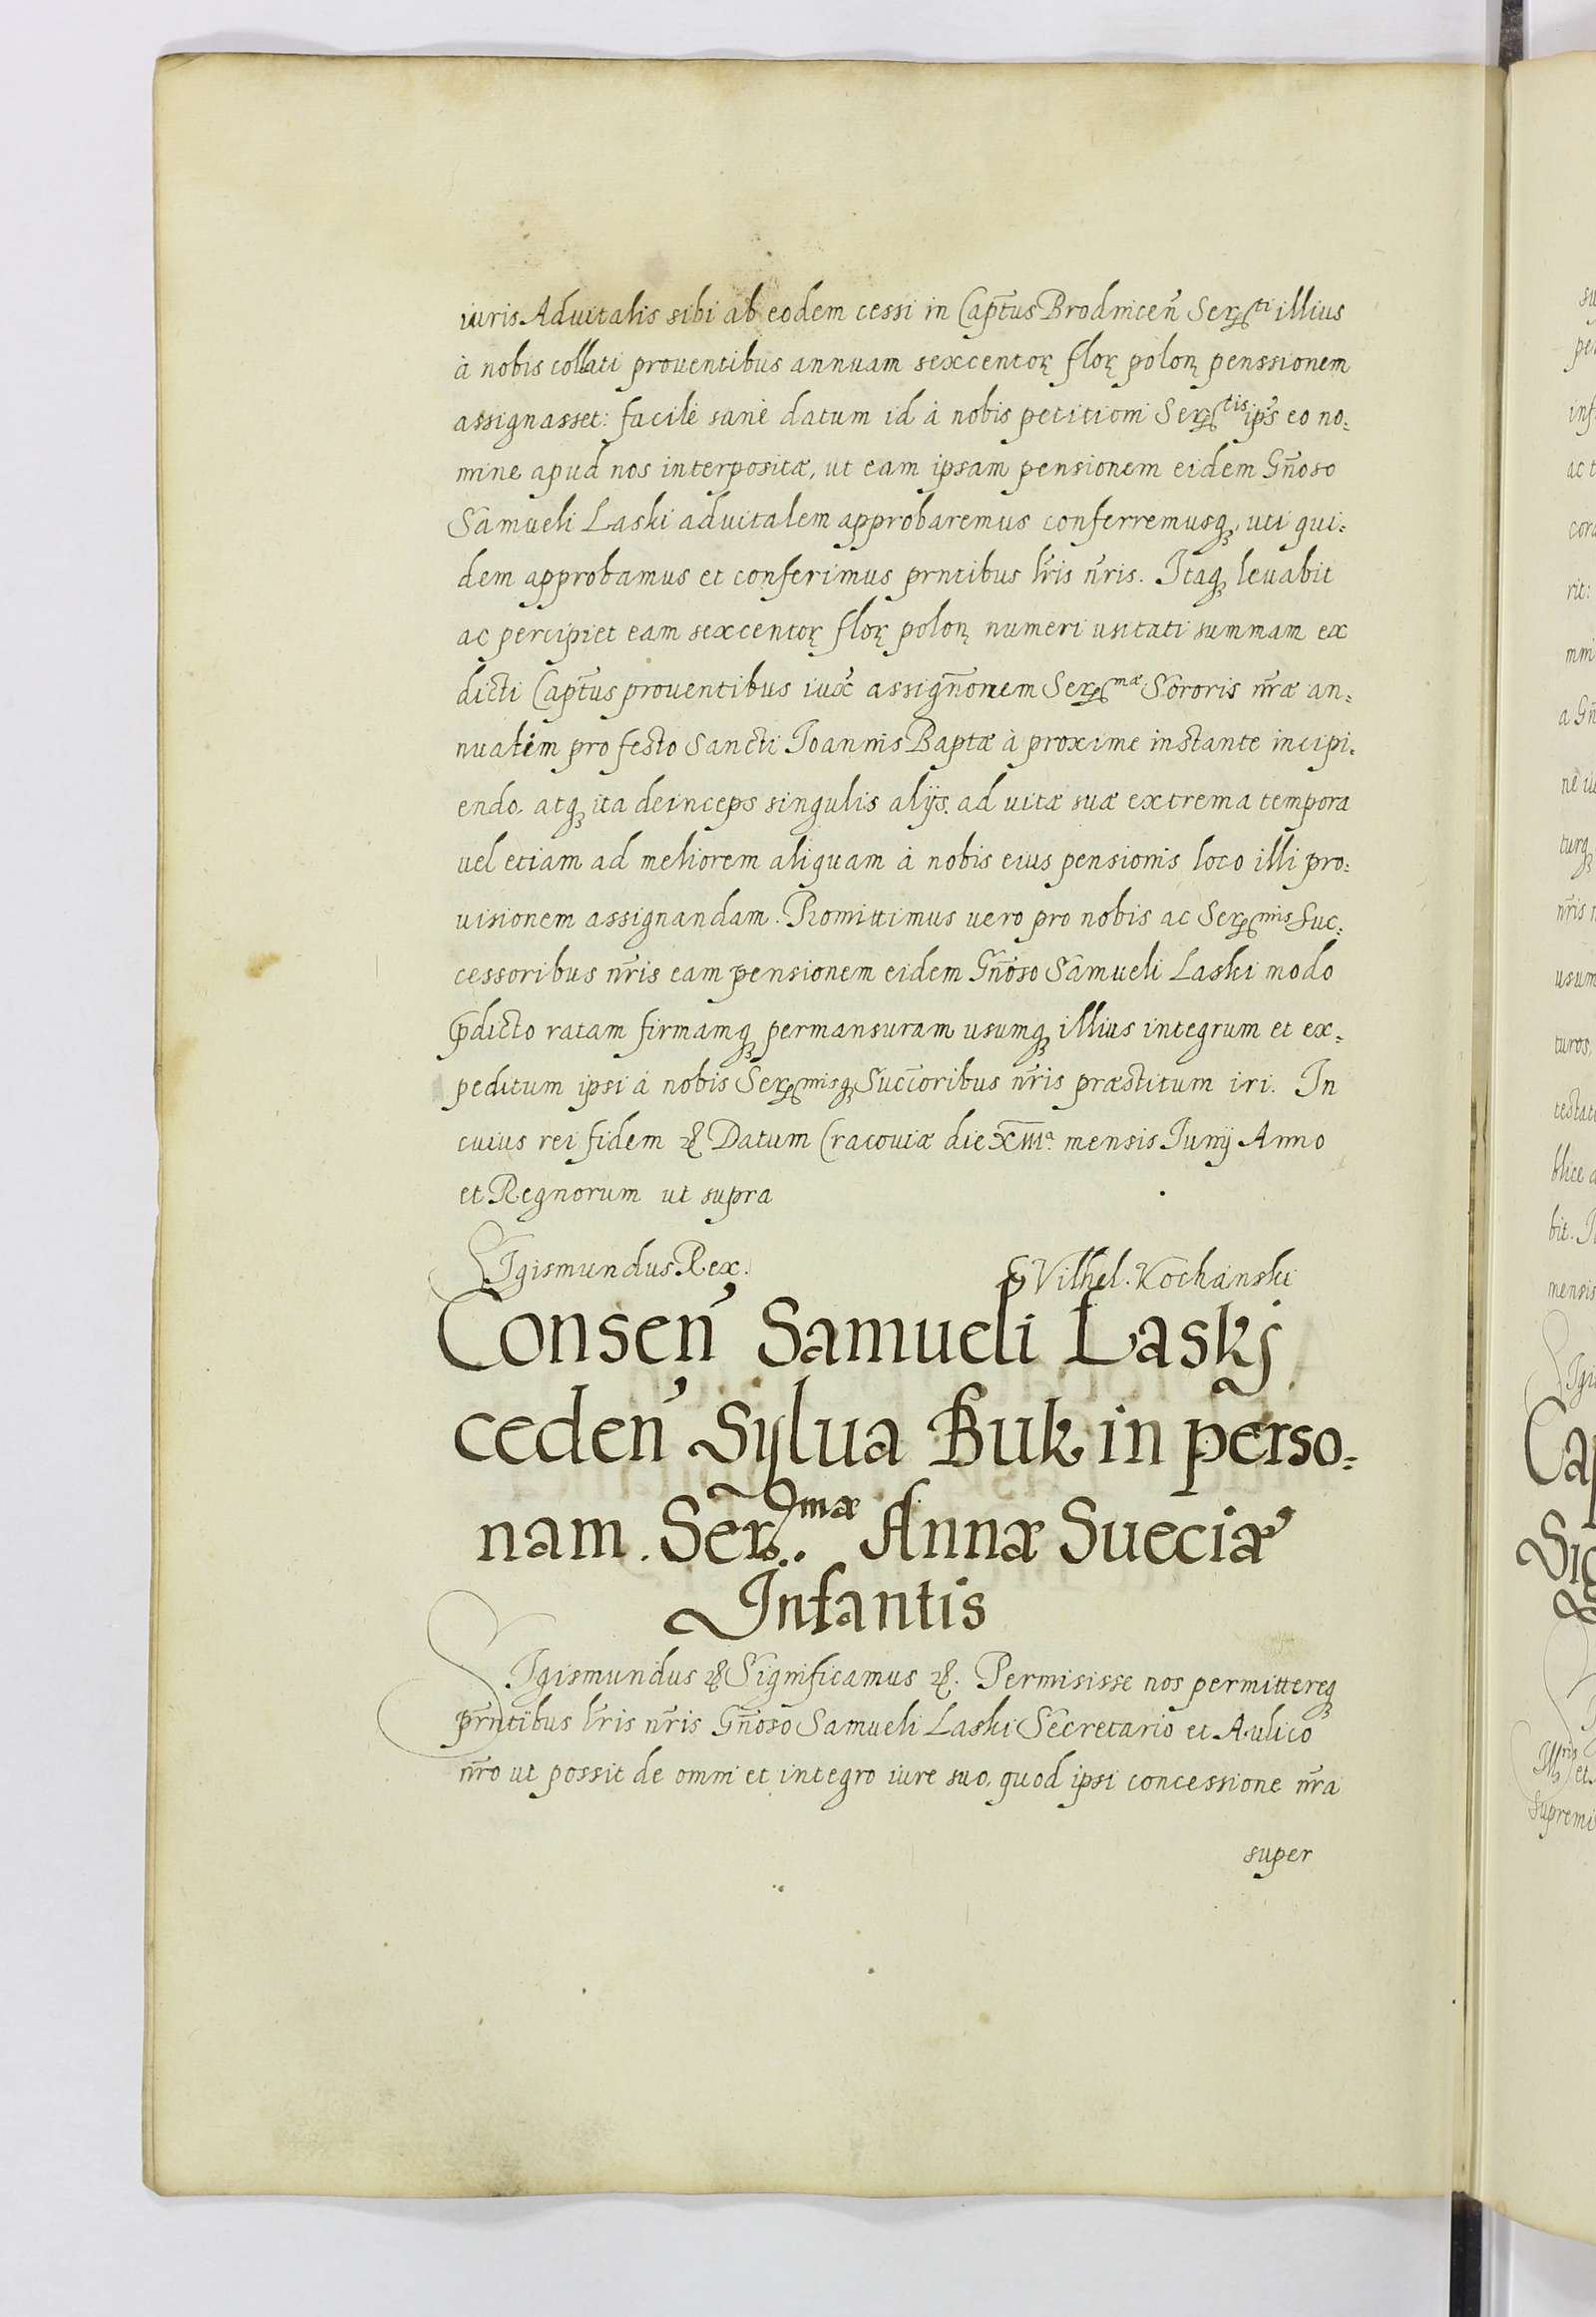 iuris Aduitalis sibi ab eodem cessi in Cap̃tus Brodnicen̄ Serti illius
à nobis collati prouentibus annuam sexcentoꝝ floꝝ polon̨ penssionem
assignasset: facile sanè datum id à nobis petitioni Sertis ip̃s eo no:
mine apud nos interpositæ, ut eam ipsam pensionem eidem Gn̄oso
Samueli Laski aduitalem approbaremus conferremusqꝫ, uti qui:
dem approbamus et conferimus prntibus lr̄is nr̄is. Itaqꝫ leuabit
ac percipiet eam sexcentoꝝ floꝝ polon̨ numeri usitati summam ex
dicti Cap̃tus prouentibus iux̃ assign̄onem Sermæ Sororis nr̄æ an:
nuatim pro festo Sancti Joannis Baptæ à proxime instante incipi:
endo, atqꝫ ita deinceps singulis alijs, ad uitæ suæ extrema tempora
uel etiam ad meliorem aliquam à nobis eius pensionis loco illi pro:
uisionem assignandam. Promittimus uero pro nobis ac Sermis Suc:
cessoribus nr̄is eam pensionem eidem Gn̄oso Samueli Laski modo
p̄dicto ratam firmamqꝫ permansuram usumqꝫ illius integrum et ex:
peditum ipsi à nobis Sermisqꝫ Succ̄oribus nr̄is præstitum iri. In
cuius rei fidem &c Datum Cracouiæ die XIIIa. mensis Iunij Anno
et Regnorum ut supra
SIgismundus Rex.
Vilhel. Kochanski
Consen̄ Samueli Laskj
ceden̄ Sylua Buk in perso:
nam. Ser.mæ Annæ Sueciæ
Infantis
SIgismundus &c Significamus &c. Permisisse nos permittereqꝫ
pr̄ntibus lr̄is nr̄is Gn̄oso Samueli Laski Secretario et Aulico
nr̄o ut possit de omni et integro iure suo, quod ipsi concessione nr̄a
super